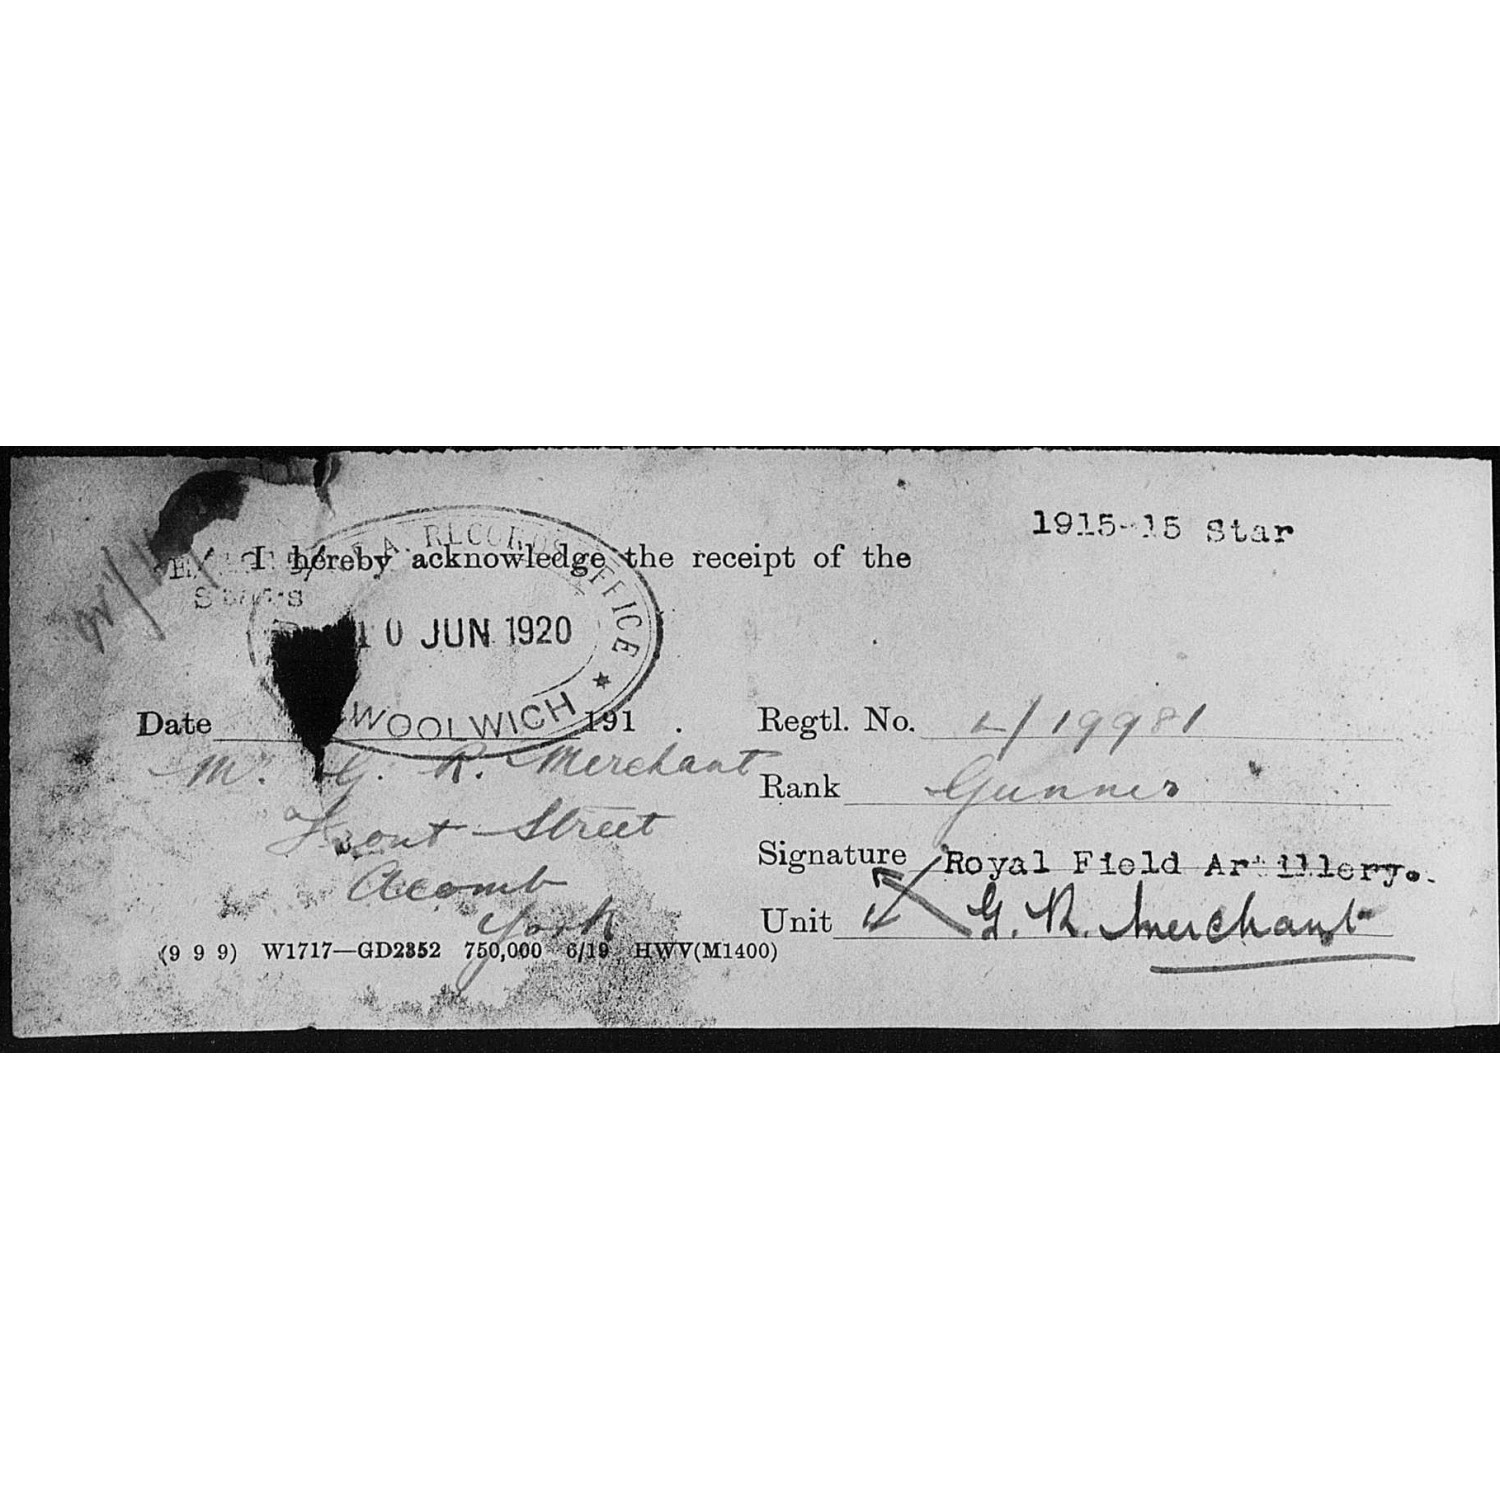 1915-15 Star
R.F.A. RECORDS OFFICE
I hereby acknowledge the receipt of the
10 JUN 1920
WOOLWICH
Date 191 .
Regtl. No. L/19981
Mr. G. R. Merchant
Rank Gunner
Front Street
Signature Royal Field Artillery.
Acomb
Unit G. R. Merchant
York
(9 9 9) W1717—GD2352 750,000 6/19 HWV(M1400)